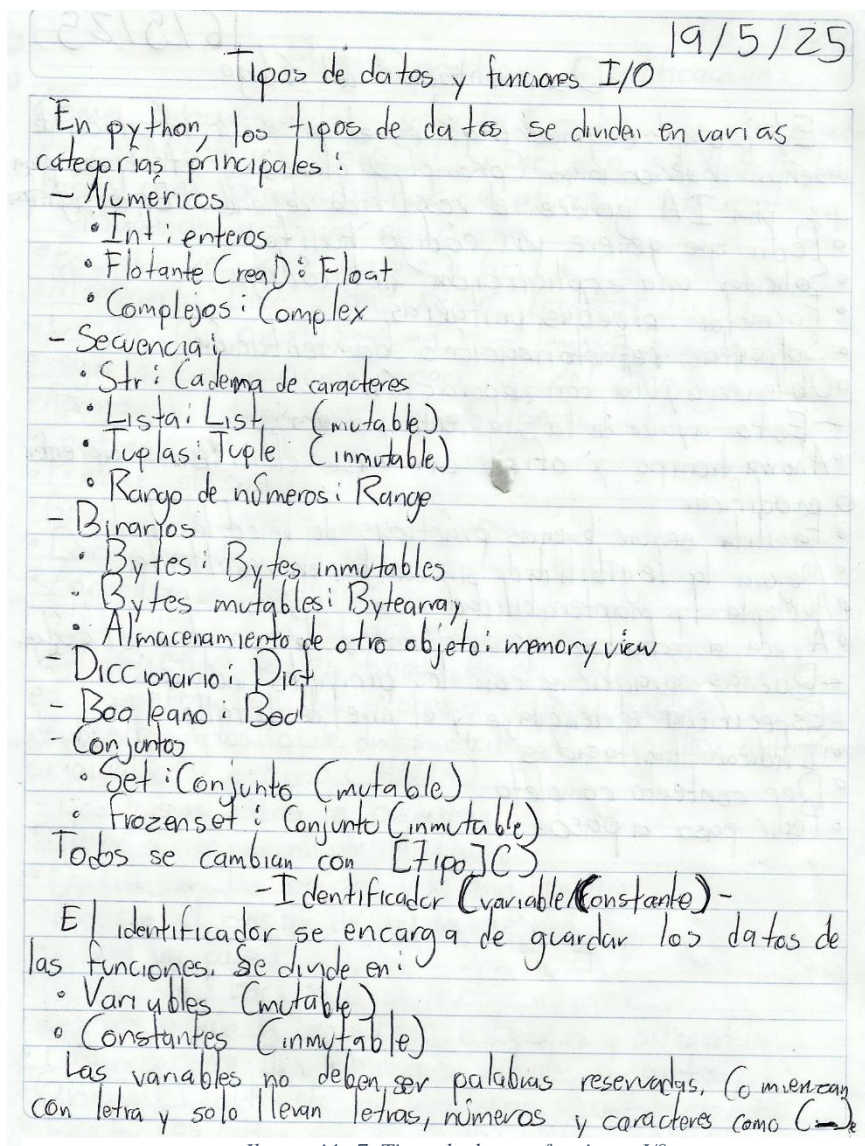 19/5/25
Tipos de datos y funciones I/O
En python, los tipos de datos se dividen en varias
categorías principales:
- Numéricos
• Int: enteros
• Flotante (real): Float
• Complejos: Complex
- Secuencia:
• Str: Cadema de caracteres
• Lista: List (mutable)
• Tuplas: Tuple (inmutable)
• Rango de números: Range
- Binarios
• Bytes: Bytes inmutables
• Bytes mutables: Bytearray
• Almacenamiento de otro objeto: memory view
- Diccionario: Dict
- Booleano: Bool
- Conjuntos
• Set: Conjunto (mutable)
• Frozenset: Conjunto (inmutable)
Todos se cambian con [tipo]()
- Identificador (variable/Constante) -
El identificador se encarga de guardar los datos de
las funciones. Se divide en:
• Variables (mutable)
• Constantes (inmutable)
Las variables no deben ser palabras reservadas, Comienzan
con letra y solo llevan letras, números y caracteres como (_).